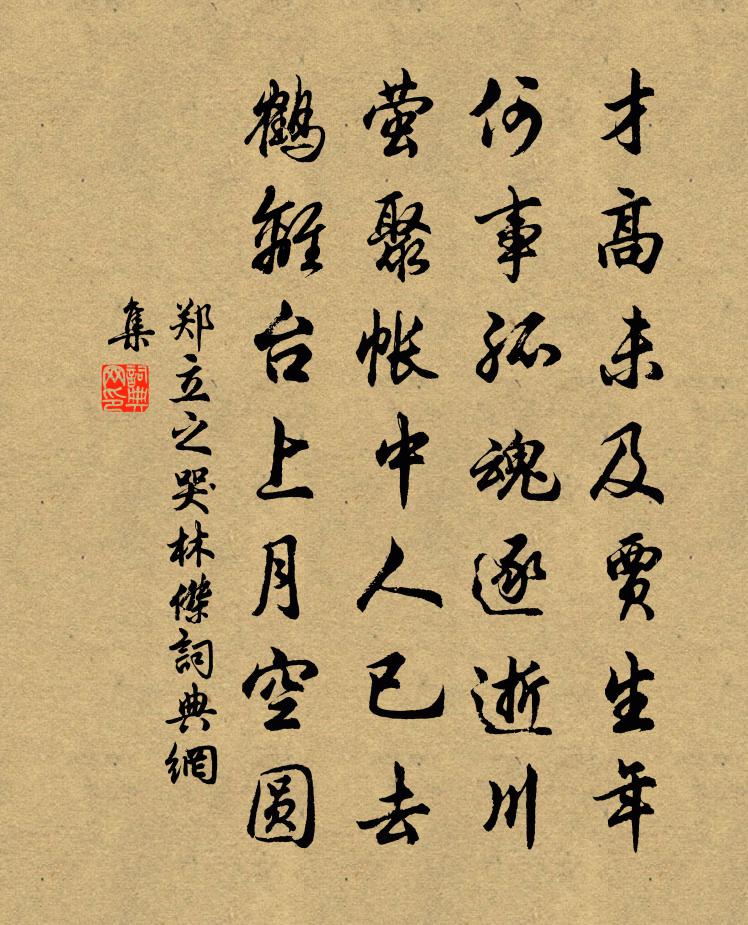 才高未及贾生年
何事孤魂逐逝川
萤聚帐中人已去
鹤离台上月空圆
郑立之哭林傑詞典網
集
詞典
网印